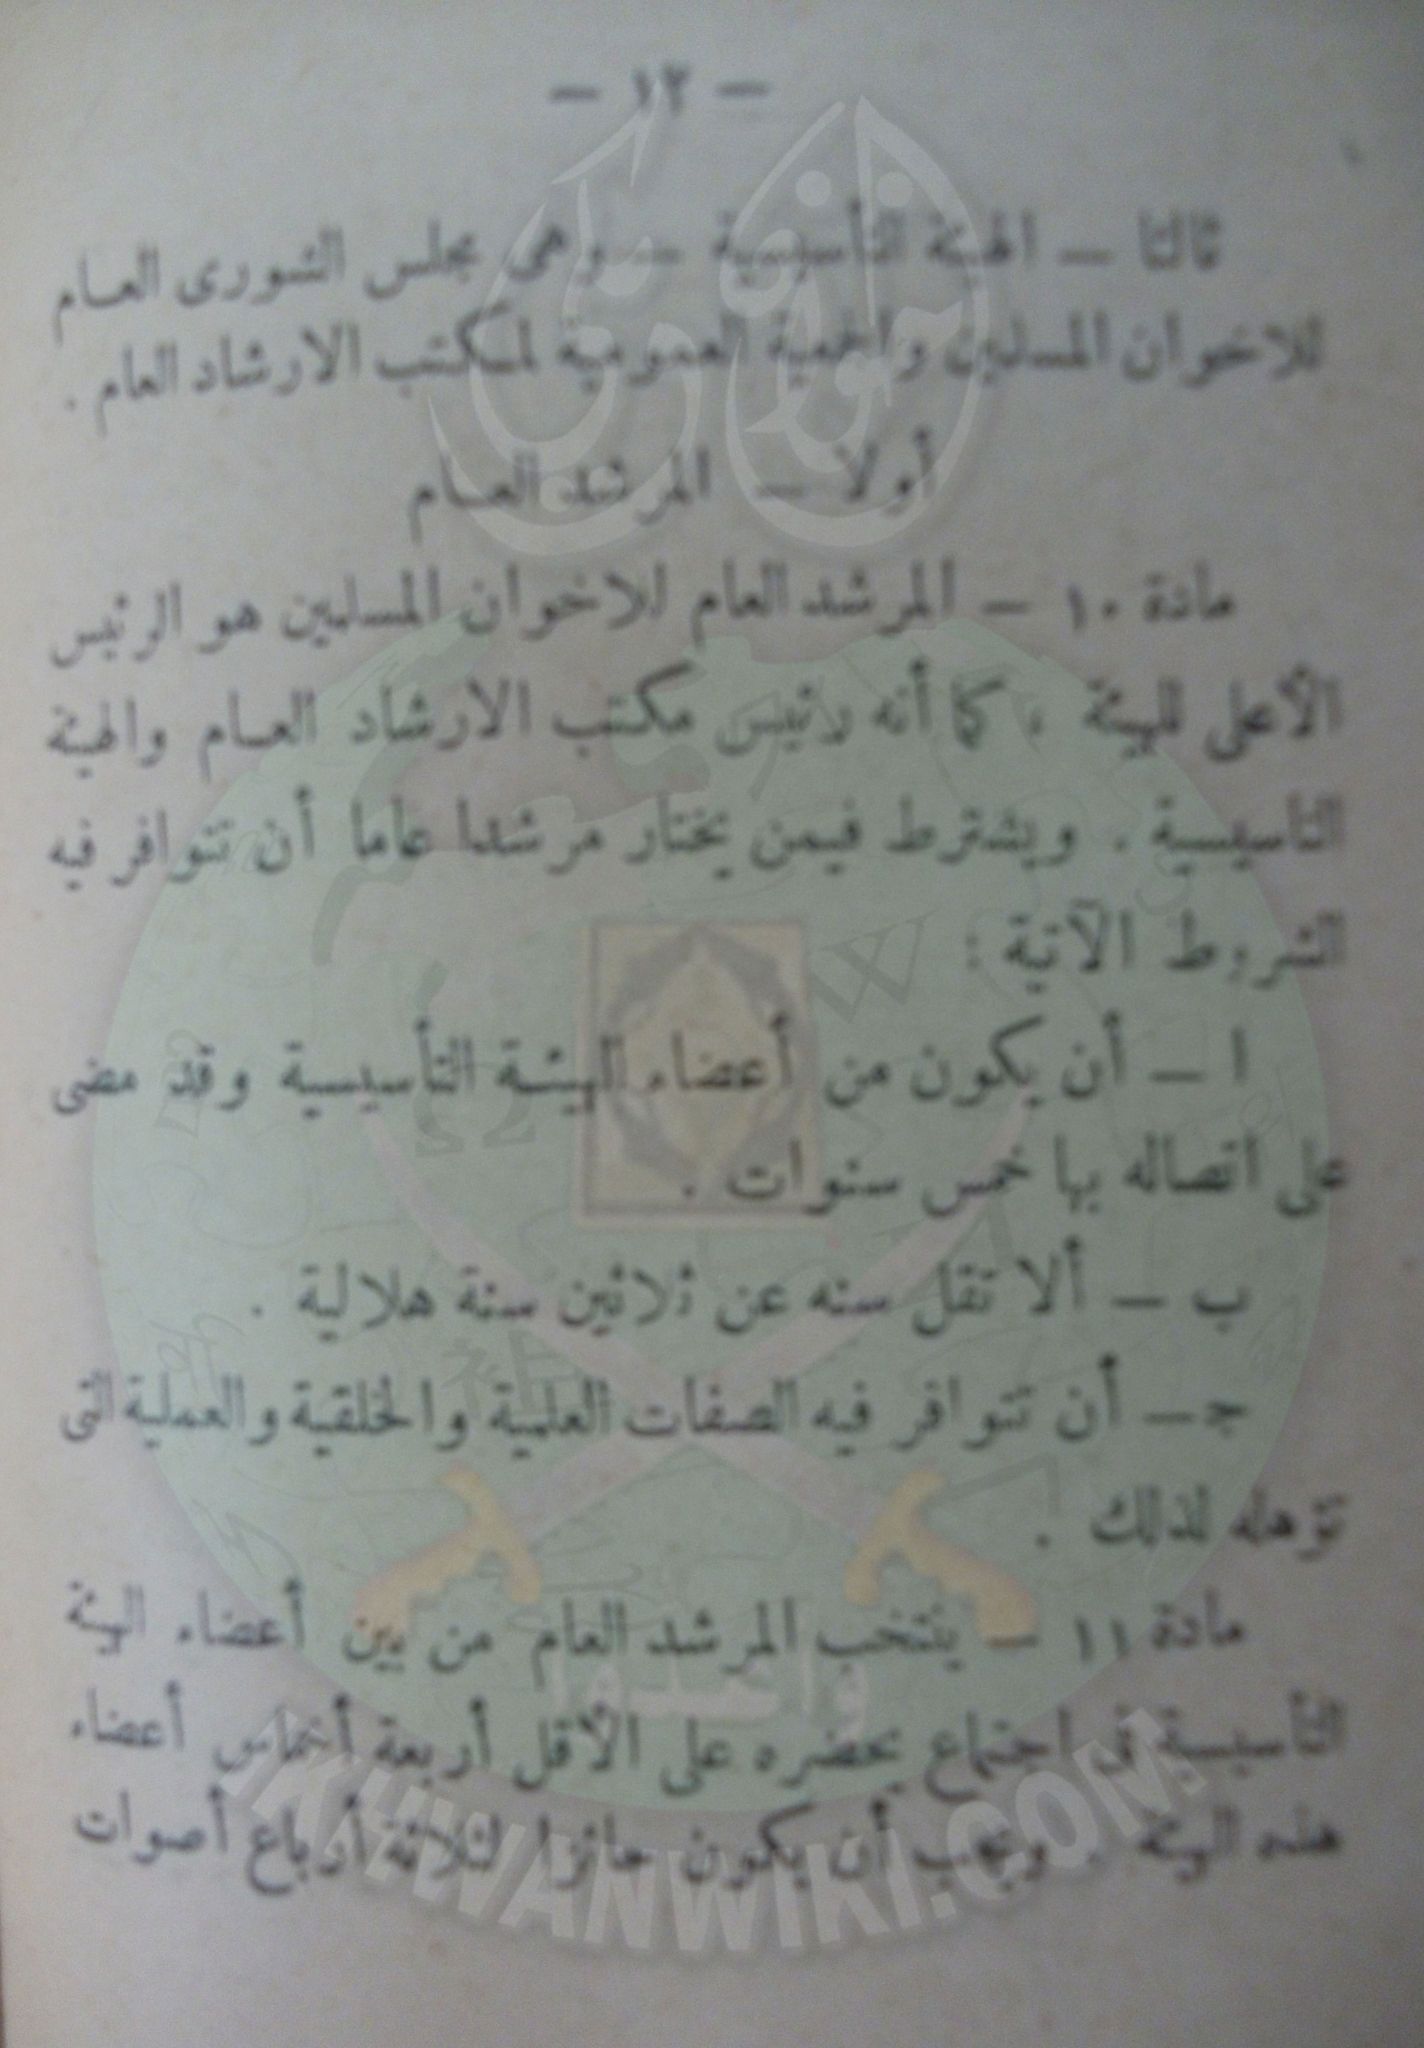 — ١٢ —
ثالثا — الهيئة التأسيسية — وهى مجلس الشورى العام
للاخوان المسلمين والجمعية العمومية لمكتب الارشاد العام .
أولا — المرشد العام
مادة ١٠ — المرشد العام للاخوان المسلمين هو الرئيس
الأعلى للهيئة ، كما أنه رئيس مكتب الارشاد العام والهيئة
التأسيسية . ويشترط فيمن يختار مرشدا عاما أن تتوافر فيه
الشروط الآتية :
ا — أن يكون من أعضاء الهيئة التأسيسية وقد مضى
على اتصاله بها خمس سنوات .
ب — ألا تقل سنه عن ثلاثين سنة هلالية .
جـ — أن تتوافر فيه الصفات العلمية والخلقية والعملية التى
تؤهله لذلك .
مادة ١١ — ينتخب المرشد العام من بين أعضاء الهيئة
التأسيسية فى اجتماع يحضره على الأقل أربعة أخماس أعضاء
هذه الهيئة . ويجب أن يكون حائزا لثلاثة أرباع أصوات
إخوان ويكي
وأعدوا
IKHWANWIKI.COM